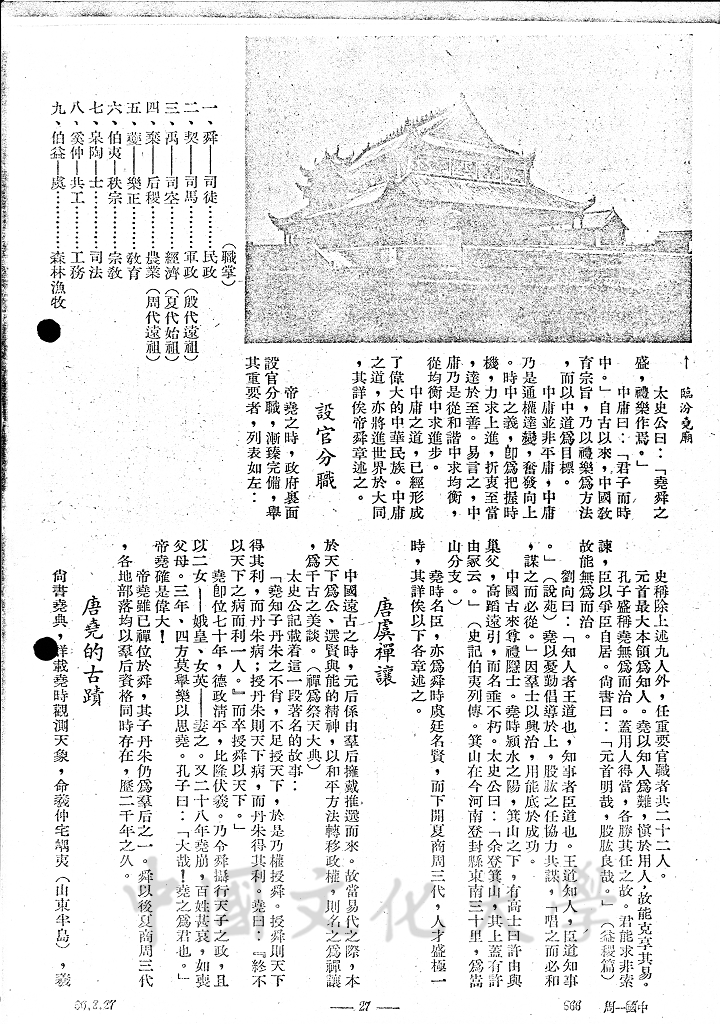 ↑ 臨汾堯廟
太史公曰：「堯舜之
盛，禮樂作焉。」
中庸曰：「君子而時
中。」自古以來，中國教
育宗旨，乃以禮樂爲方法
，而以中道爲目標。
中庸並非平庸，中庸
乃是通權達變，奮發向上
。時中之義，卽爲把握時
機，力求上進，折衷至當
，達於至善。易言之，中
庸乃是從和諧中求均衡，
從均衡中求進步。
中庸之道，已經形成
了偉大的中華民族。中庸
之道，亦將進世界於大同
，其詳俟帝舜章述之。
設官分職
帝堯之時，政府裏面
設官分職，漸臻完備，舉
其重要者，列表如左：
（職掌）
一、舜——司徒………民政
二、契——司馬………軍政（殷代遠祖）
三、禹——司空………經濟（夏代始祖）
四、棄——后稷………農業（周代遠祖）
五、夔——樂正………教育
六、伯夷——秩宗………宗教
七、皋陶——士………司法
八、奚仲——共工………工務
九、伯益——虞………森林漁牧
史稱除上述九人外，任重要官職者共二十二人。
元首最大本領爲知人。堯以知人爲難，愼於用人，故能克享其易。
孔子盛稱堯無爲而治。蓋用人得當，各勝其任之故。君能求非索
諫，臣以爭臣自居。尙書曰：「元首明哉，股肱良哉。」（益稷篇）
故能無爲而治。
劉向曰：「知人者王道也，知事者臣道也。王道知人，臣道知事
。」（說苑）堯以憂勤倡導於上，股肱之任協力共謀，「唱之而必和
，謀之而必從。」因羣士以興治，用能底於成功。
中國古來尊禮隱士。堯時潁水之陽，箕山之下，有高士曰許由與
巢父，高蹈遠引，而名垂不朽。太史公曰：「余登箕山，其上蓋有許
由冢云。」（史記伯夷列傳。箕山在今河南登封縣東南三十里，爲嵩
山分支。）
堯時名臣，亦爲舜時虞廷名賢，而下開夏商周三代，人才盛極一
時，其詳俟以下各章述之。
唐虞禪讓
中國遠古之時，元后係由羣后擁戴推選而來。故當易代之際，本
於天下爲公、選賢與能的精神，以和平方法轉移政權，則名之爲禪讓
，爲千古之美談。（禪爲祭天大典）
太史公記載着這一段著名的故事：
「堯知子丹朱之不肖，不足授天下，於是乃權授舜。授舜則天下
得其利，而丹朱病；授丹朱則天下病，而丹朱得其利。堯曰：『終不
以天下之病而利一人。』而卒授舜以天下。」
堯卽位七十年，德政淸平，比隆伏羲。乃令舜攝行天子之政，且
以二女——娥皇、女英——妻之。又二十八年堯崩，百姓甚哀，如喪
父母。三年、四方莫舉樂以思堯。孔子曰：「大哉！堯之爲君也。」
帝堯確是偉大！
帝堯雖已禪位於舜，其子丹朱仍爲羣后之一。舜以後夏商周三代
，各地部落均以羣后資格同時存在，歷二千年之久。
唐堯的古蹟
尙書堯典，詳載堯時觀測天象，命羲仲宅嵎夷（山東半島），羲
中國文化大學
中國一周 866
— 27 —
56.2.27